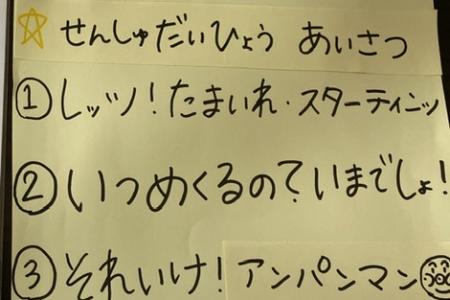 ☆ せんしゅだいひょう あいさつ
① しッツ！たまいれ・スターティンッ
② いつめくるの？いまでしょ！
③ それいけ！アンパンマン